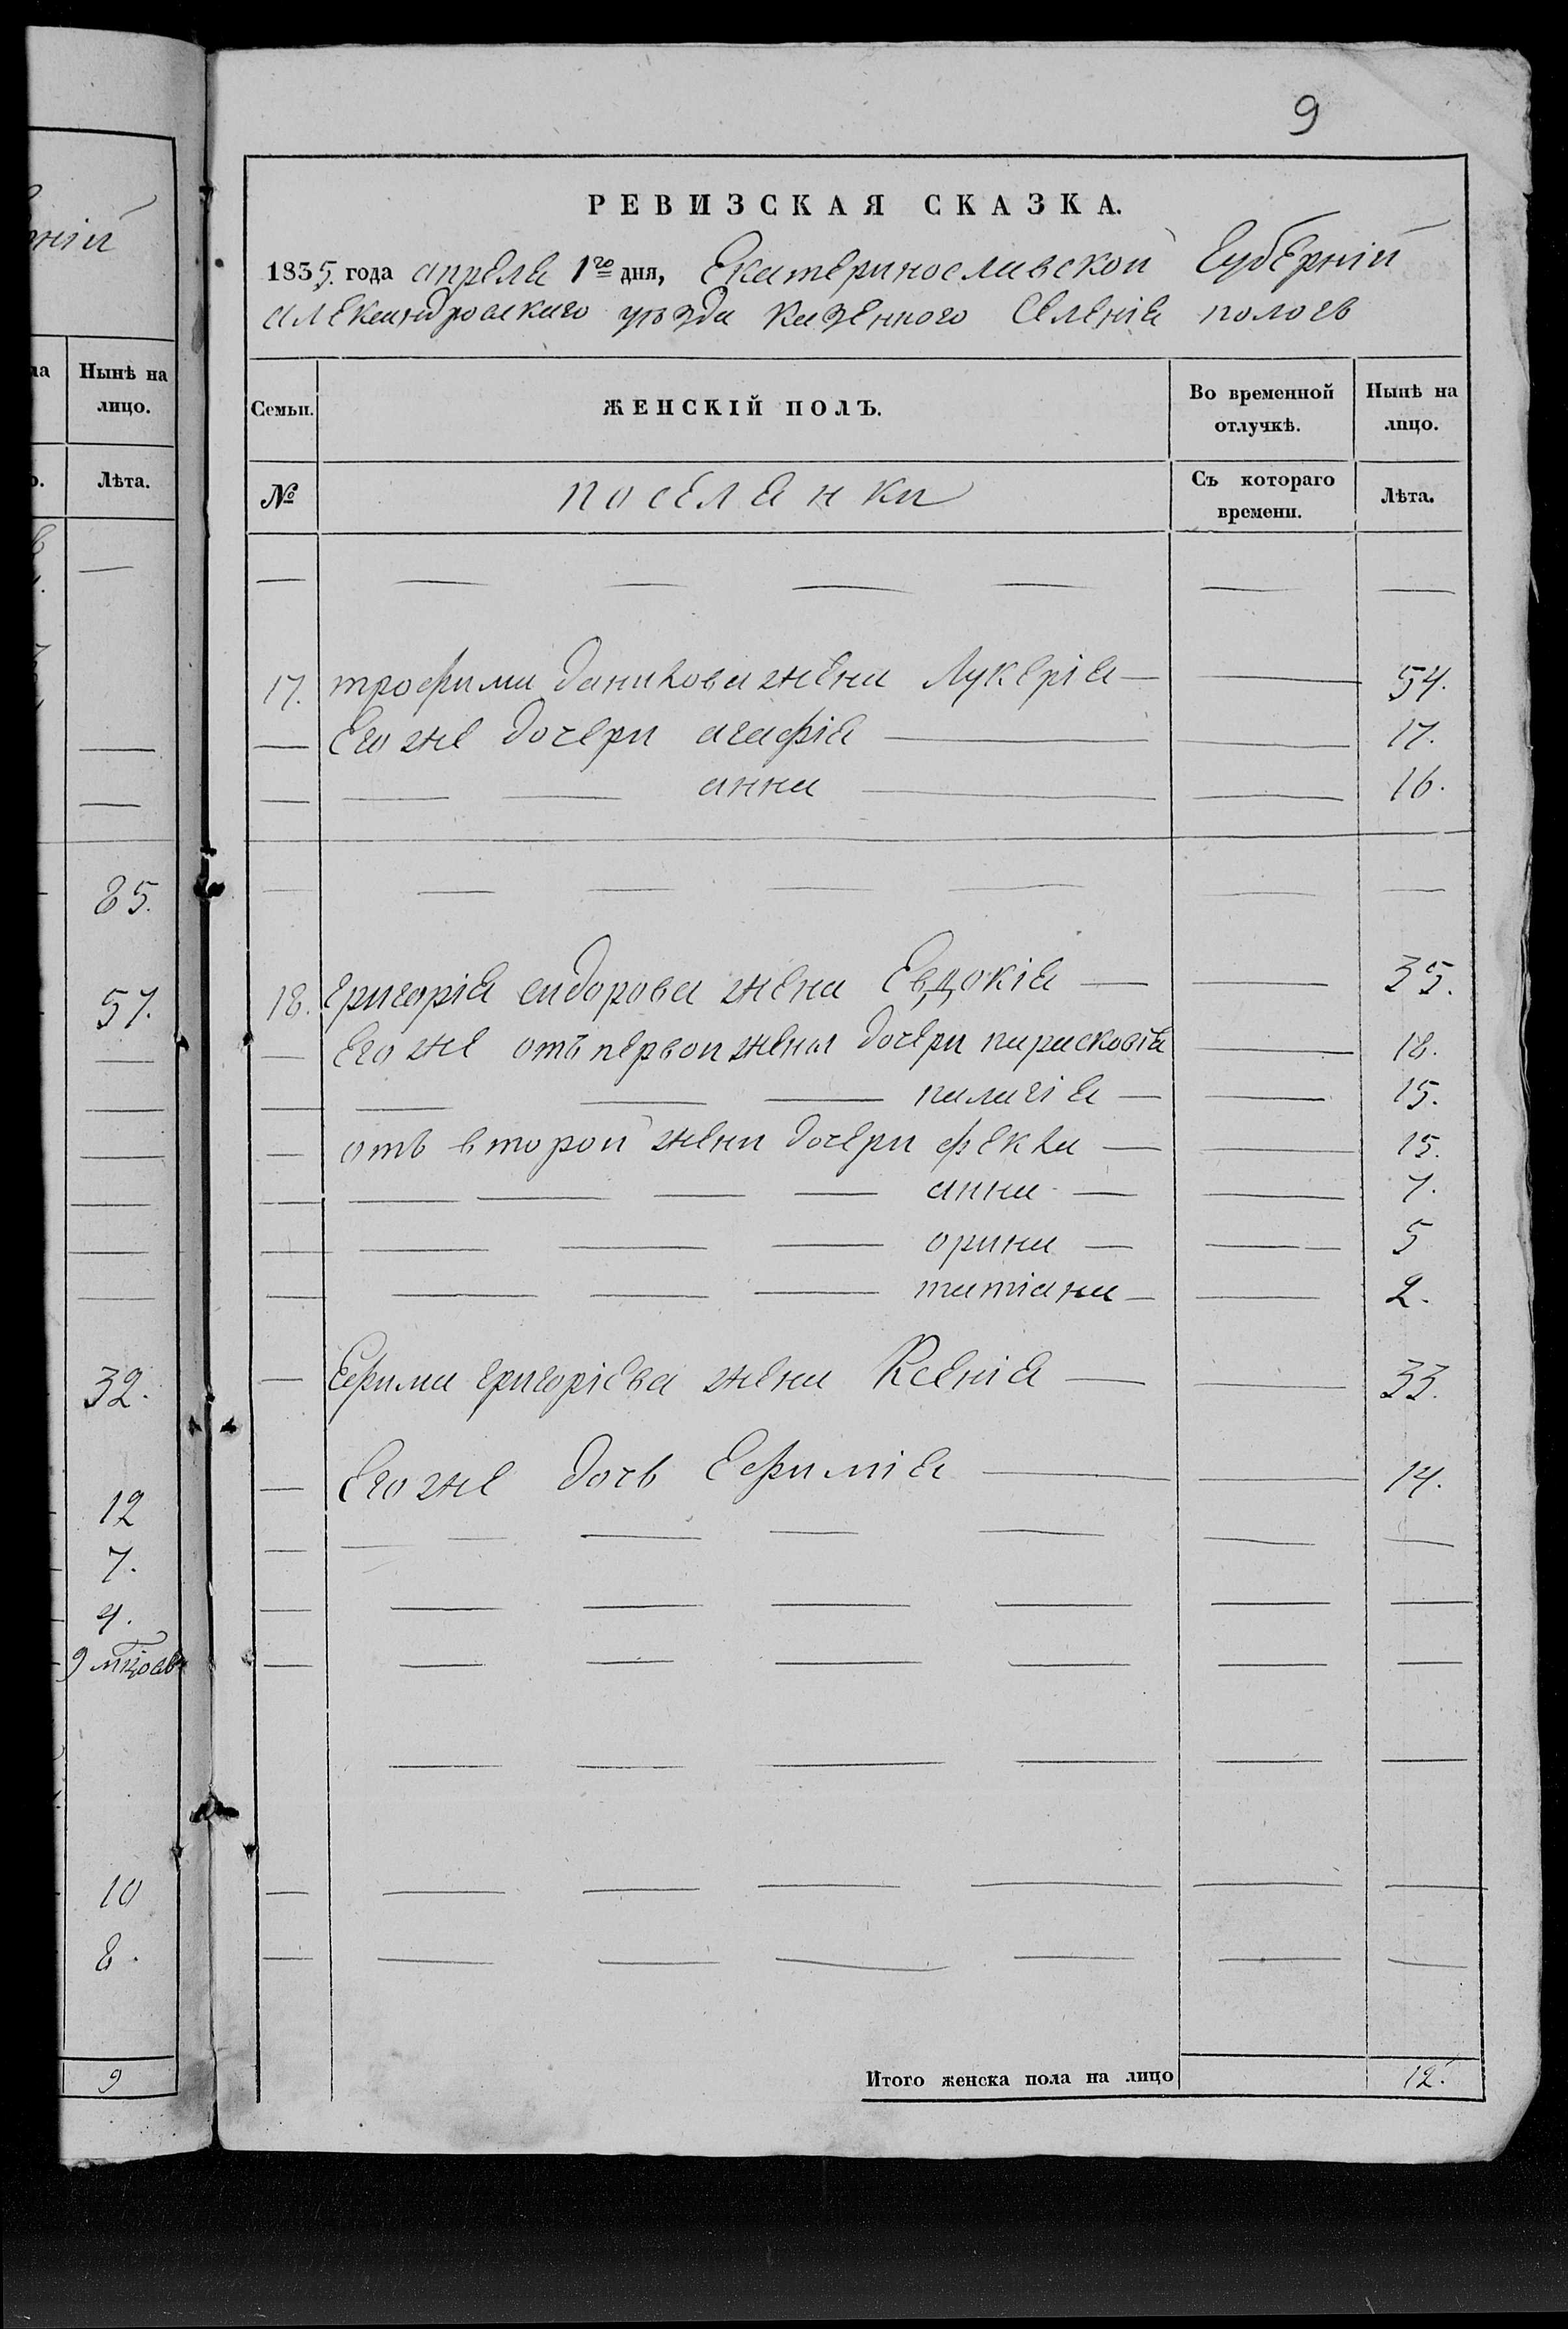 ній
на
Нынѣ на
лицо.
Лѣта.
85.
57.
32.
12
7.
4.
9 мцовъ
10
8.
9
9
РЕВИЗСКАЯ СКАЗКА.
1835. года апреля 1го дня, Екатеринославской Губерній
александровскаго уѣзда казенного Селенія пологъ
Семьи.
ЖЕНСКІЙ ПОЛЪ.
Во временной
отлучкѣ.
Нынѣ на
лицо.
№
поселянки
Съ котораго
времени.
Лѣта.
17. трофима данилова жена Лукерія 54.
Его же дочери агафія 17.
анна 16.
18. григорія сидорова жена Евдокія 35.
Его же отъ первои жены дочери парасковія 18.
палагія 15.
отъ второй жени дочери фекла 15.
анна 7.
орина 5
татіана 2.
Ефима григоріева жена Ксенія 33.
Его же дочь Ефимія 14.
Итого женска пола на лицо 12.